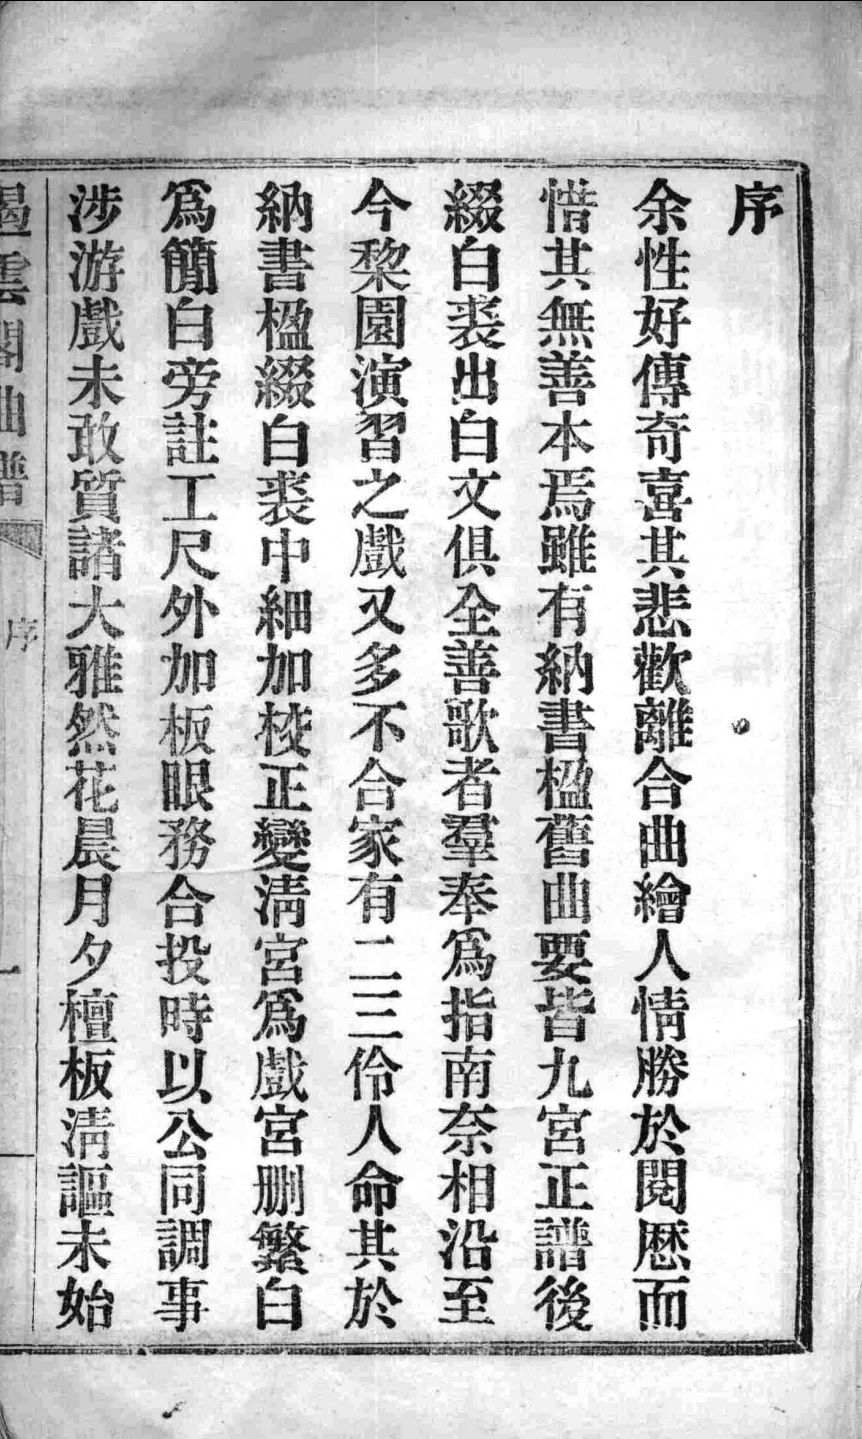 序
余性好傳奇喜其悲歡離合曲繪人情勝於閱歷而
惜其無善本焉雖有納書楹舊曲要皆九宮正譜後
綴白裘出白文俱全善歌者羣奉爲指南奈相沿至
今棃園演習之戲又多不合家有二三伶人命其於
納書楹綴白裘中細加校正變淸宮爲戲宮删繁白
爲簡白旁註工尺外加板眼務合投時以公同調事
涉游戲未敢質諸大雅然花晨月夕檀板淸謳未始
遏雲閣曲譜
序
一